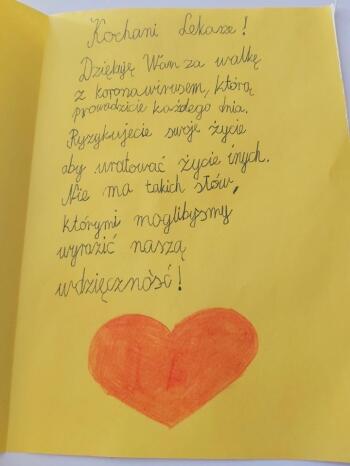 Kochani Lekarze!
Dziękuję Wam za walkę
z koronawirusem, którą
prowadzicie każdego dnia.
Ryzykujecie swoje życie
aby uratować życie inych.
Nie ma takich słów,
którymi moglibyśmy
wyrazić naszą
wdzięczność!